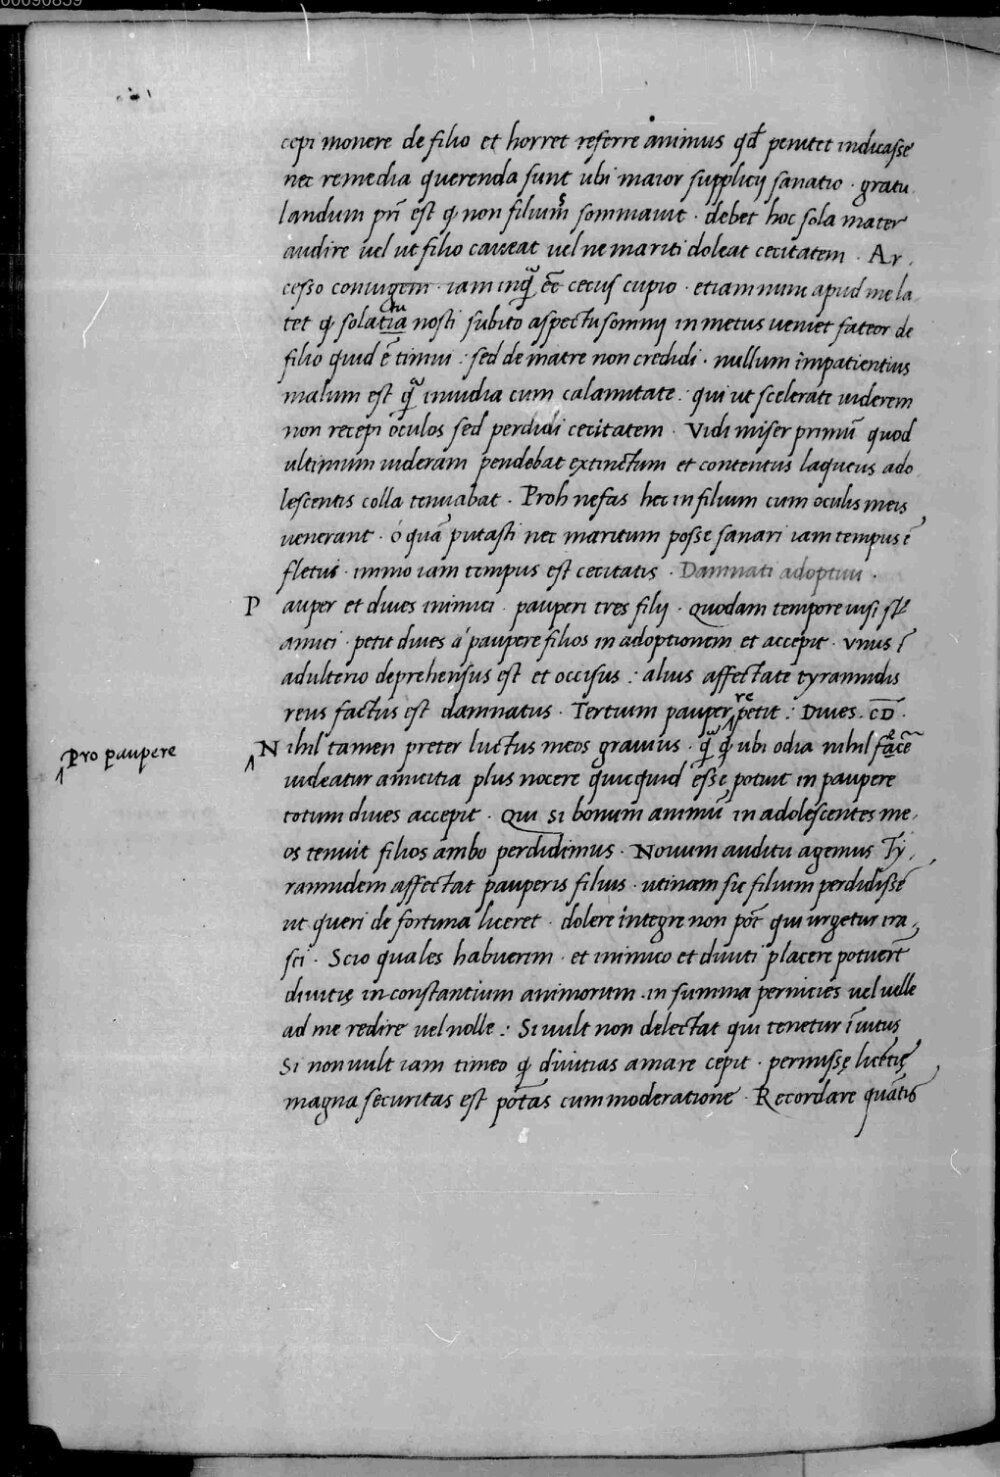 cepi monere de filio et horret referre animus qd̄ penitet indicasse
nec remedia querenda sunt ubi maior supplicij sanatio · gratu
landum prī est q̨ non filiums somniauit · debet hoc sola mater
audire vel ut filio caveat vel ne mariti doleat cecitatem · Ar
cesso coniugem · iam inquā eē cecus cupio · etiam nunc apud me la
tet q̨ solatia tu nosti subito aspectu somnij in metus veniet fateor de
filio quid ē timui : sed de matre non credidi · nullum impatientius
malum est quā inuidia cum calamitate : qui ut scelerate uiderem
non recepi oculos sed perdidi cecitatem · Vidi miser primū quod
ultimum uideram pendebat extinctum et contentus laqueus ado
lescentis colla tenuabat · Proh nefas hec in filium cum oculis meis
venerant · ó quā putasti nec maritum posse sanari iam tempus ē
fletui · immo iam tempus est cecitatis · Damnati adoptiui ·
Pauper et diues inimici · pauperi tres filij · Quodam tempore uisi st̄
amici · petit diues á paupere filios in adoptionem et accepit · vnus ī
adulterio deprehensus est et occisus : alius affectate tyrannidis
reus factus est damnatus · Tertium pauper repetit : Diues · C̄D̄ ·
Pro paupere
Nihil tamen preter luctus meos grauius · ubi odia nihil
uideatur amicitia plus nocere quicquid esse potuit in paupere
totum diues accepit · Qui si bonum animū in adolescentes me
os tenuit filios ambo perdidimus · Novum auditu agemus Ty
rannidem affectat pauperis filius · utinam sic filium perdidisse
ut queri de fortuna liceret · dolere integre non pōt qui urgetur ira
sci · Scio quales habuerim · et inimico et diuiti placere potuert̄
diuitię inconstantium animorum · in summa pernicies vel velle
ad me redire vel nolle : Si uult non delectat qui tenetur īuitus
Si non uult iam timeo q̨ diuitias amare cepit · permissę licētię
magna securitas est potētas cum moderatione · Recordare quātis